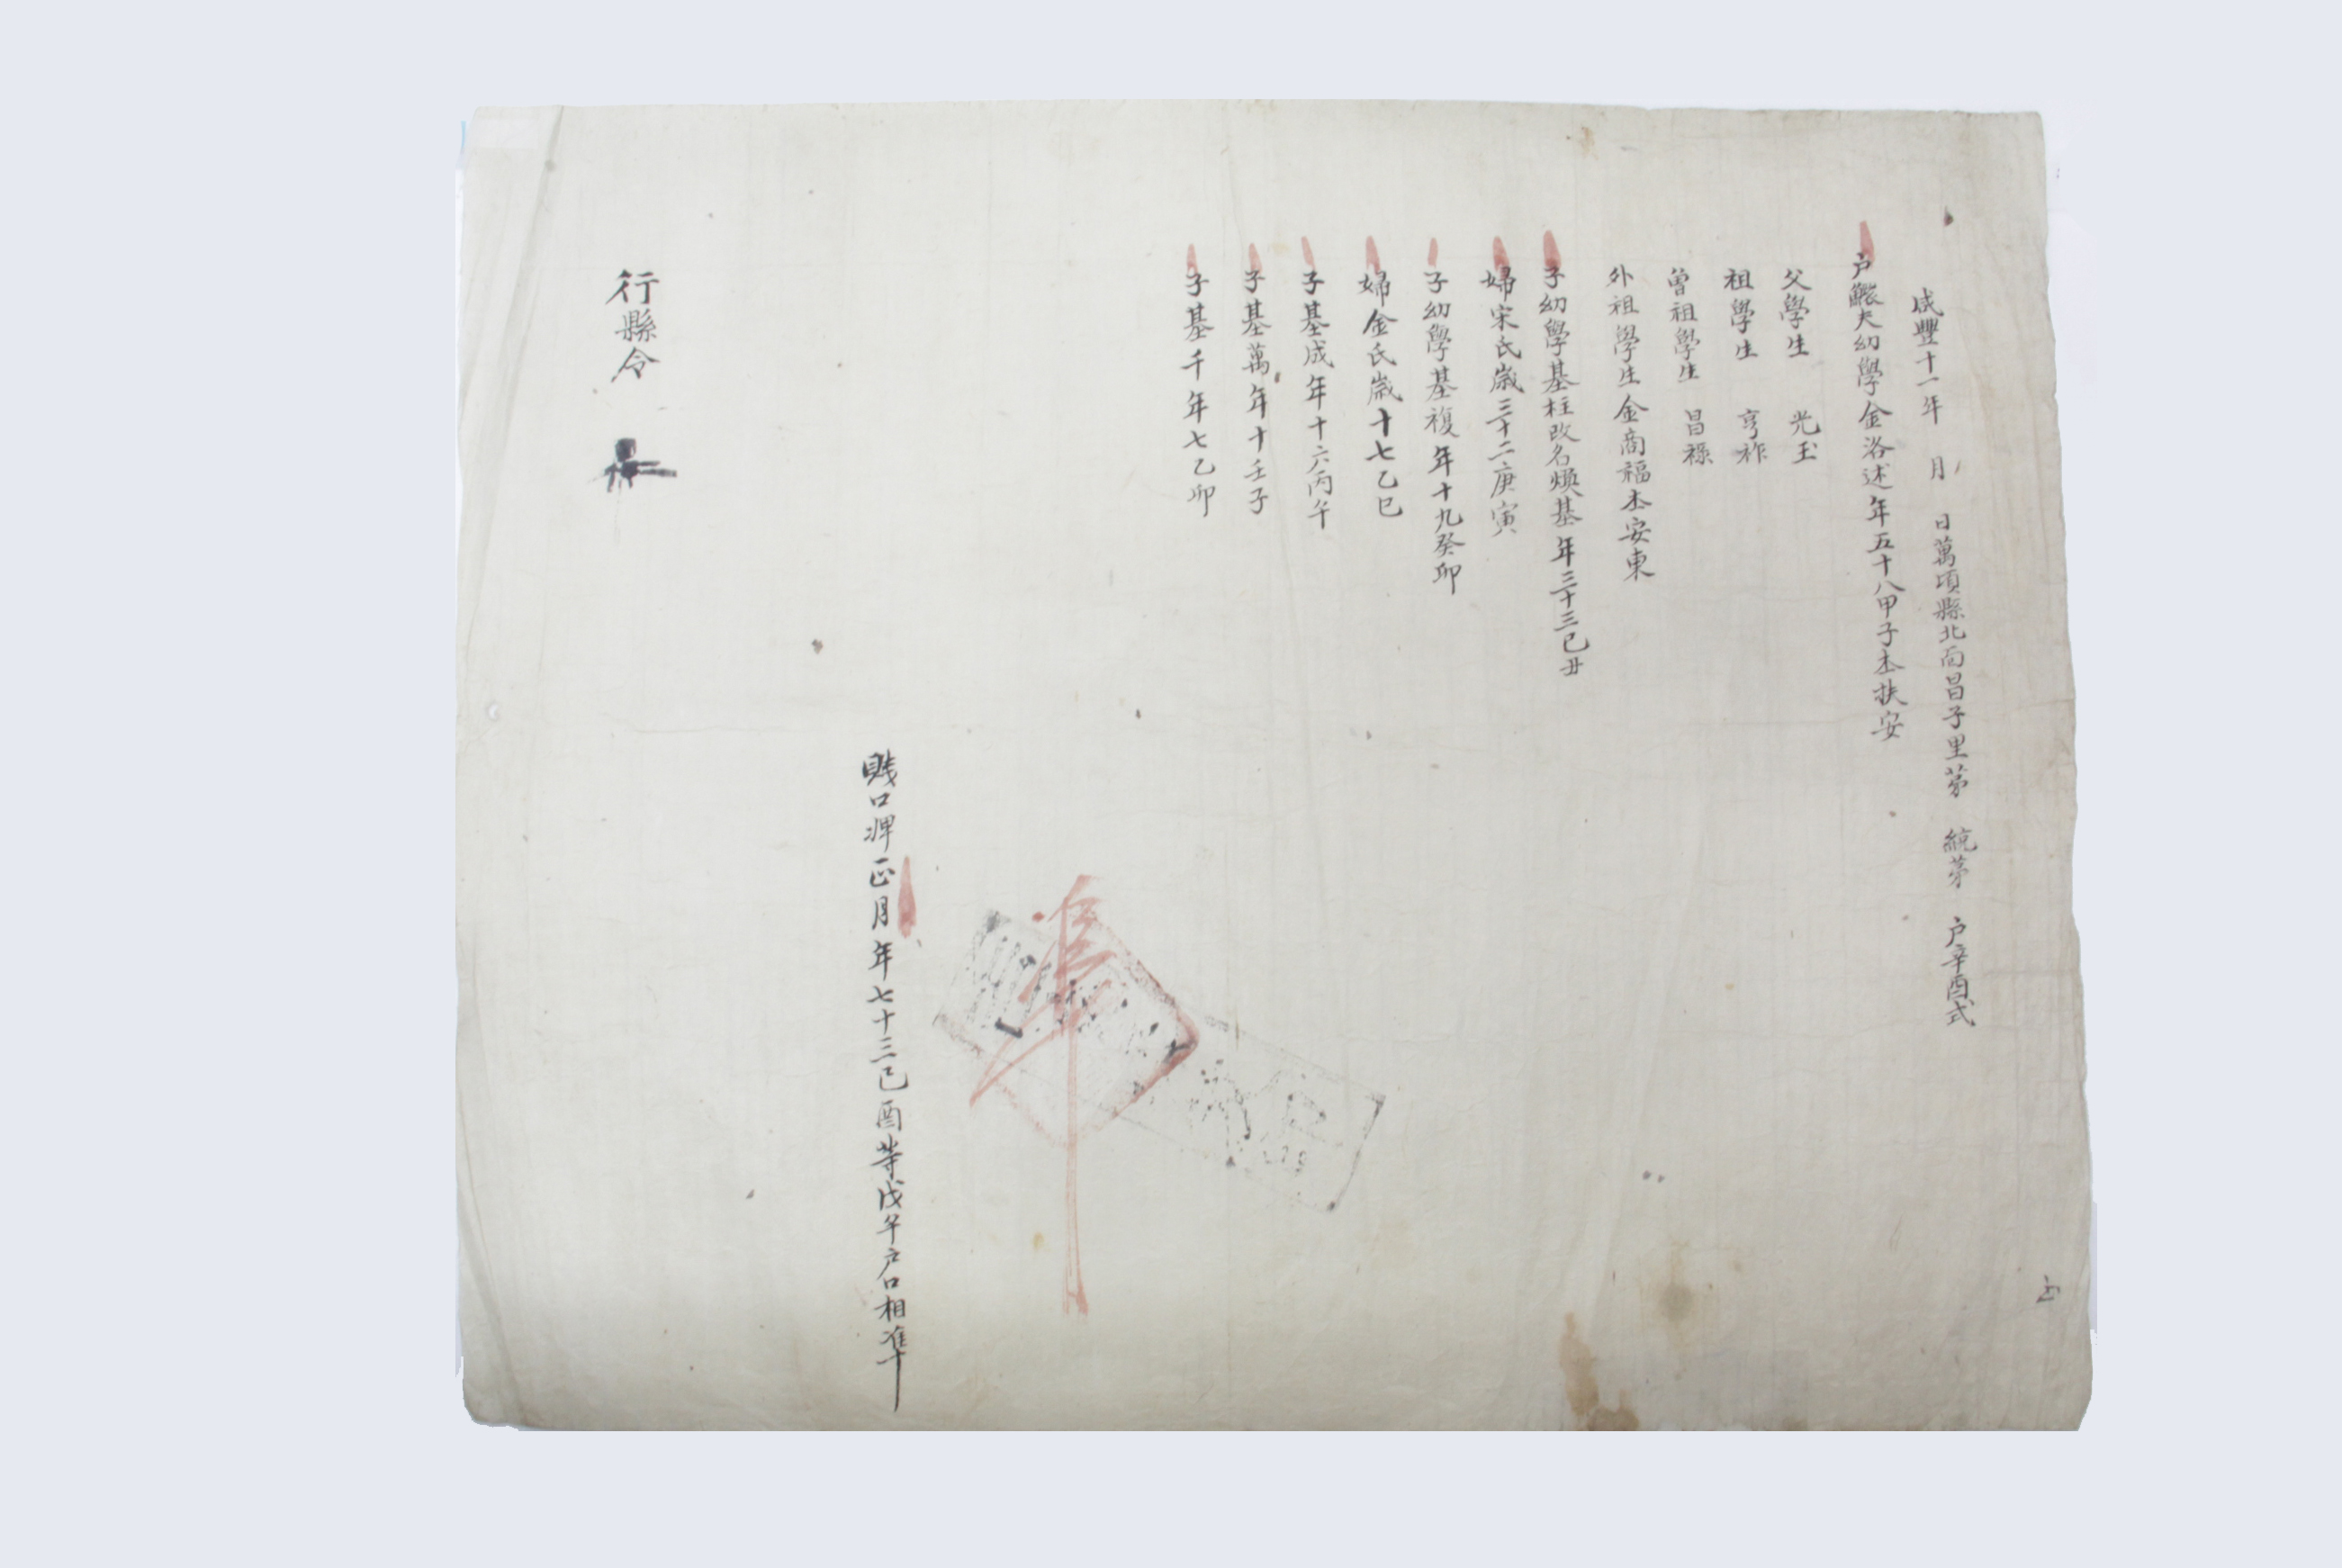 咸豐十一年 月 日萬頃縣北面昌子里苐 統苐 户辛酉式
户鰥夫幼學金洛述年五十八甲子夲扶安
父學生 光玉
祖學生 亨祚
曾祖學生 昌祿
外祖學生金商福夲安東
子幼學基柱改名煥基年三十三己丑
婦宋氏歲三十二庚寅
子幼學基複年十九癸卯
婦金氏歲十七乙巳
子基成年十六丙午
子基萬年十壬子
子基千年七乙卯
賤口婢正月年七十三己酉等戊午户口相準
準
行縣令